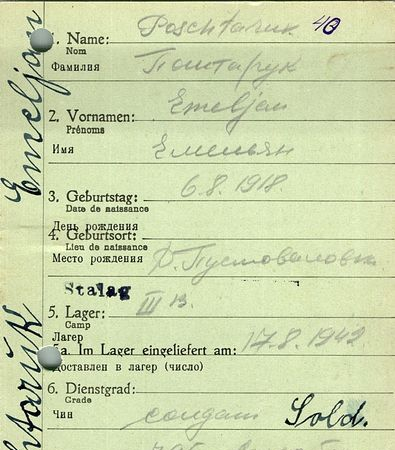 1. Name: Poschtaruk 40
Nom
Фамилия Поштарук
2. Vornamen: Emeljan
Prénoms
Имя Емельян
3. Geburtstag: 6.8.1918.
Date de naissance
День рождения
4. Geburtsort:
Lieu de naissance
Место рождения д. Пустоваловка
Stalag
5. Lager: III B
Camp
Лагерь
5a. Im Lager eingeliefert am: 17.8.1942
Доставлен в лагерь (число)
6. Dienstgrad:
Grade
Чин солдат Sold.
Emeljan